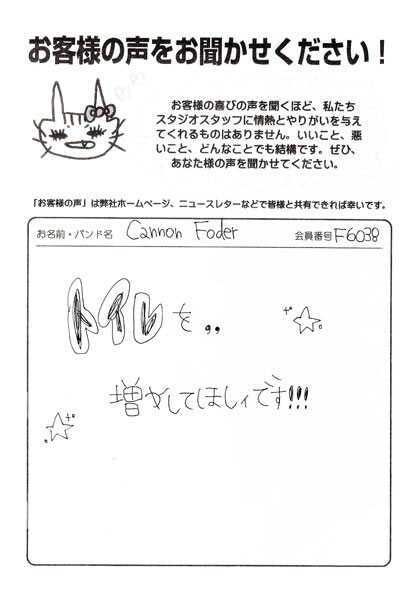 お客様の声をお聞かせください！
お客様の喜びの声を聞くほど、私たち
スタジオスタッフに情熱とやりがいを与え
てくれるものはありません。いいこと、悪
いこと、どんなことでも結構です。ぜひ、
あなた様の声を聞かせてください。
「お客様の声」は弊社ホームページ、ニュースレターなどで皆様と共有できれば幸いです。
お名前・バンド名 Cannon Foder 会員番号 F6038
トイレを,,
増やしてほしィです!!!